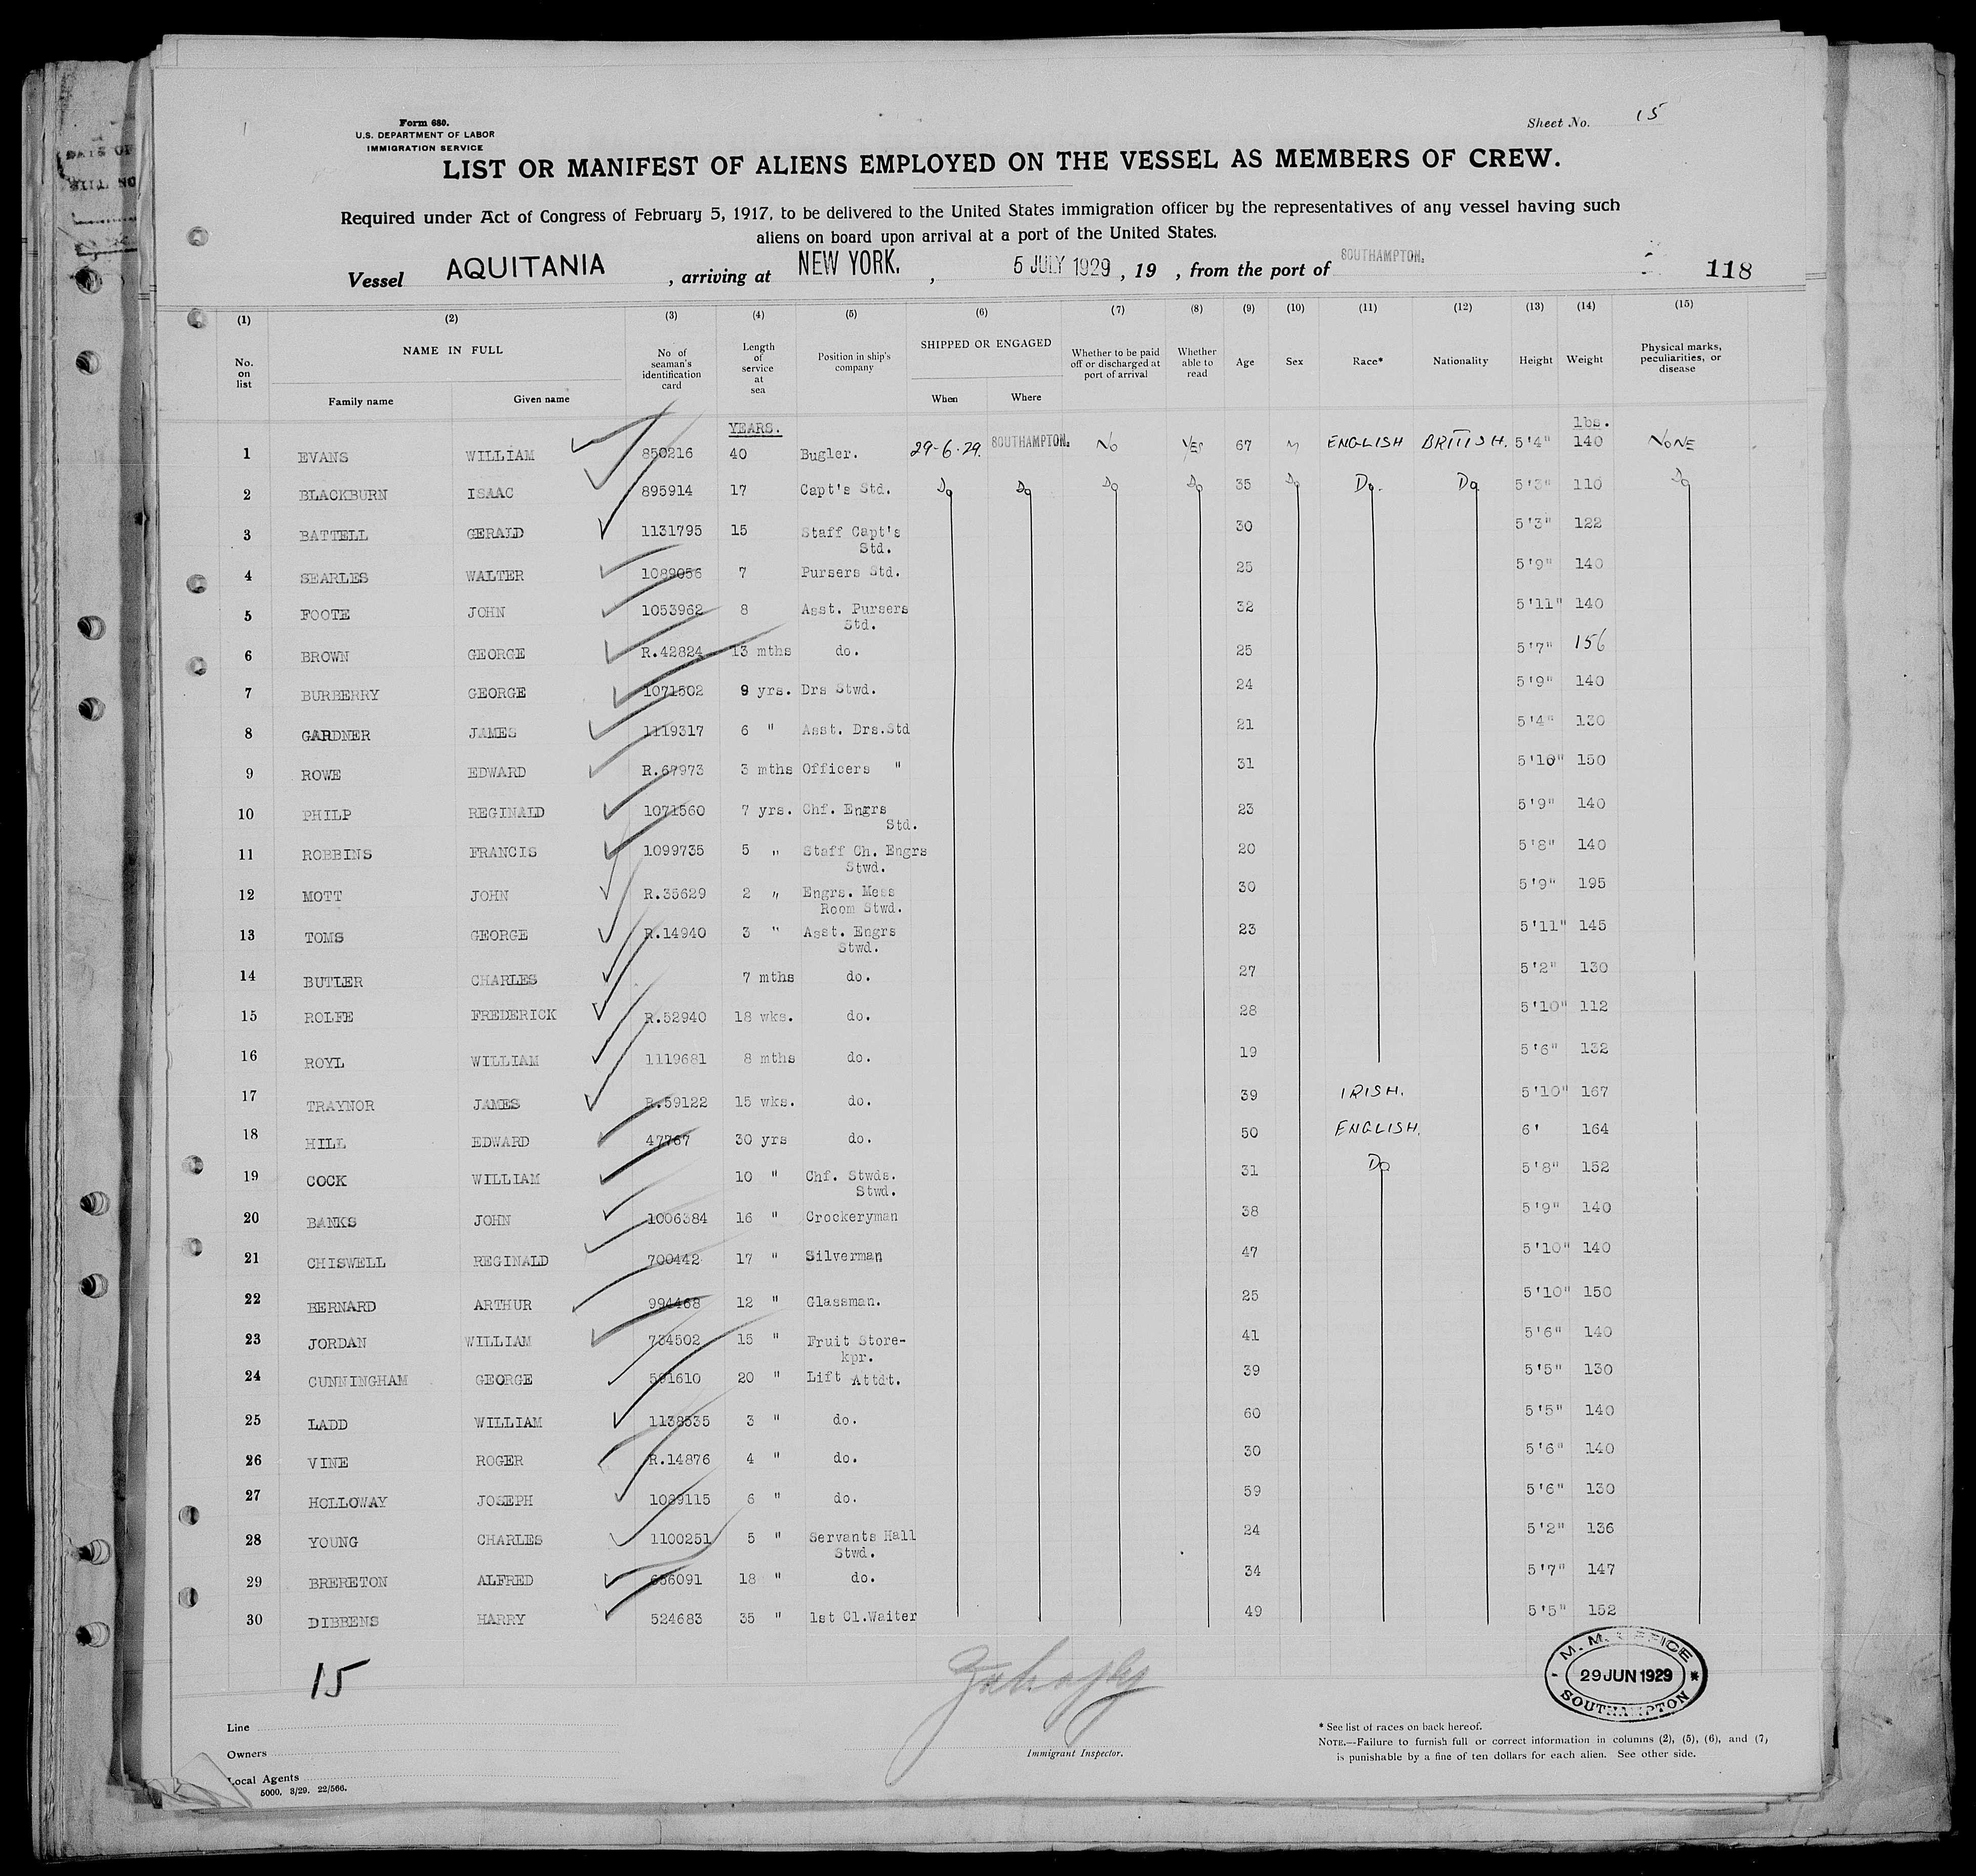 Form 680.
U.S. DEPARTMENT OF LABOR
IMMIGRATION SERVICE
Sheet No. 15
LIST OR MANIFEST OF ALIENS EMPLOYED ON THE VESSEL AS MEMBERS OF CREW.
Required under Act of Congress of February 5, 1917, to be delivered to the United States immigration officer by the representatives of any vessel having such
aliens on board upon arrival at a port of the United States.
Vessel AQUITANIA , arriving at NEW YORK. , 5 JULY 1929 , 19 , from the port of SOUTHAMPTON. 118
(1) (2) (3) (4) (5) (6) (7) (8) (9) (10) (11) (12) (13) (14) (15)
No. on list NAME IN FULL No of seaman's identification card Length of service at sea Position in ship's company SHIPPED OR ENGAGED Whether to be paid off or discharged at port of arrival Whether able to read Age Sex Race* Nationality Height Weight Physical marks, peculiarities, or disease
Family name Given name When Where
YEARS. lbs.
1 EVANS WILLIAM 850216 40 Bugler. 29-6-29. SOUTHAMPTON. No Yes 67 M ENGLISH BRITISH. 5'4" 140 NONE
2 BLACKBURN ISAAC 895914 17 Capt's Std. Do Do Do Do 35 Do Do. Do 5'3" 110 Do
3 BATTELL GERALD 1131795 15 Staff Capt's Std. 30 5'3" 122
4 SEARLES WALTER 1089056 7 Pursers Std. 25 5'9" 140
5 FOOTE JOHN 1053962 8 Asst. Pursers Std. 32 5'11" 140
6 BROWN GEORGE R.42824 13 mths do. 25 5'7" 156
7 BURBERRY GEORGE 1071502 9 yrs. Drs Stwd. 24 5'9" 140
8 GARDNER JAMES 1119317 6 " Asst. Drs.Std 21 5'4" 130
9 ROWE EDWARD R.67973 3 mths Officers " 31 5'10" 150
10 PHILP REGINALD 1071560 7 yrs. Chf. Engrs Std. 23 5'9" 140
11 ROBBINS FRANCIS 1099735 5 " Staff Ch. Engrs Stwd. 20 5'8" 140
12 MOTT JOHN R.35629 2 " Engrs. Mess Room Stwd. 30 5'9" 195
13 TOMS GEORGE R.14940 3 " Asst. Engrs Stwd. 23 5'11" 145
14 BUTLER CHARLES 7 mths do. 27 5'2" 130
15 ROLFE FREDERICK R.52940 18 wks. do. 28 5'10" 112
16 ROYL WILLIAM 1119681 8 mths do. 19 5'6" 132
17 TRAYNOR JAMES R.59122 15 wks. do. 39 IRISH. 5'10" 167
18 HILL EDWARD 47767 30 yrs do. 50 ENGLISH. 6' 164
19 COCK WILLIAM 10 " Chf. Stwds. Stwd. 31 Do 5'8" 152
20 BANKS JOHN 1006384 16 " Crockeryman 38 5'9" 140
21 CHISWELL REGINALD 700442 17 " Silverman 47 5'10" 140
22 BERNARD ARTHUR 994468 12 " Glassman. 25 5'10" 150
23 JORDAN WILLIAM 734502 15 " Fruit Store-kpr. 41 5'6" 140
24 CUNNINGHAM GEORGE 591610 20 " Lift Attdt. 39 5'5" 130
25 LADD WILLIAM 1138535 3 " do. 60 5'5" 140
26 VINE ROGER R.14876 4 " do. 30 5'6" 140
27 HOLLOWAY JOSEPH 1089115 6 " do. 59 5'6" 130
28 YOUNG CHARLES 1100251 5 " Servants Hall Stwd. 24 5'2" 136
29 BRERETON ALFRED 656091 18 " do. 34 5'7" 147
30 DIBBENS HARRY 524683 35 " 1st Cl.Waiter 49 5'5" 152
15
M. M. OFFICE
29 JUN 1929
SOUTHAMPTON
Line
Owners
Local Agents
5000. 3/29. 22/566.
Immigrant Inspector.
* See list of races on back hereof.
NOTE.—Failure to furnish full or correct information in columns (2), (5), (6), and (7)
is punishable by a fine of ten dollars for each alien. See other side.